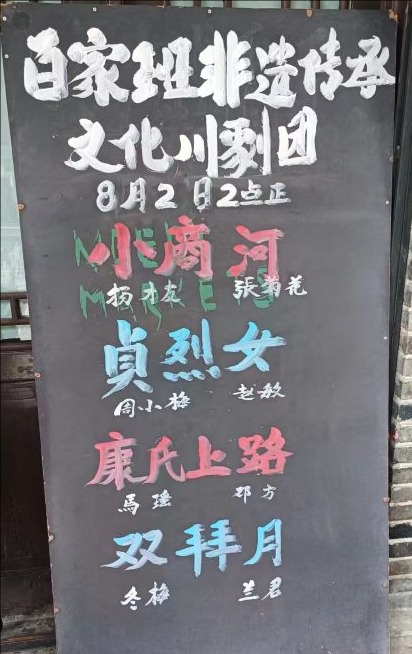 百家班非遗传承
文化川剧团
8月2日2点正
小商河
杨木友 張菊花
貞烈女
周小梅 赵敏
康氏上路
馬瑶 邓方
双拜月
冬梅 兰君